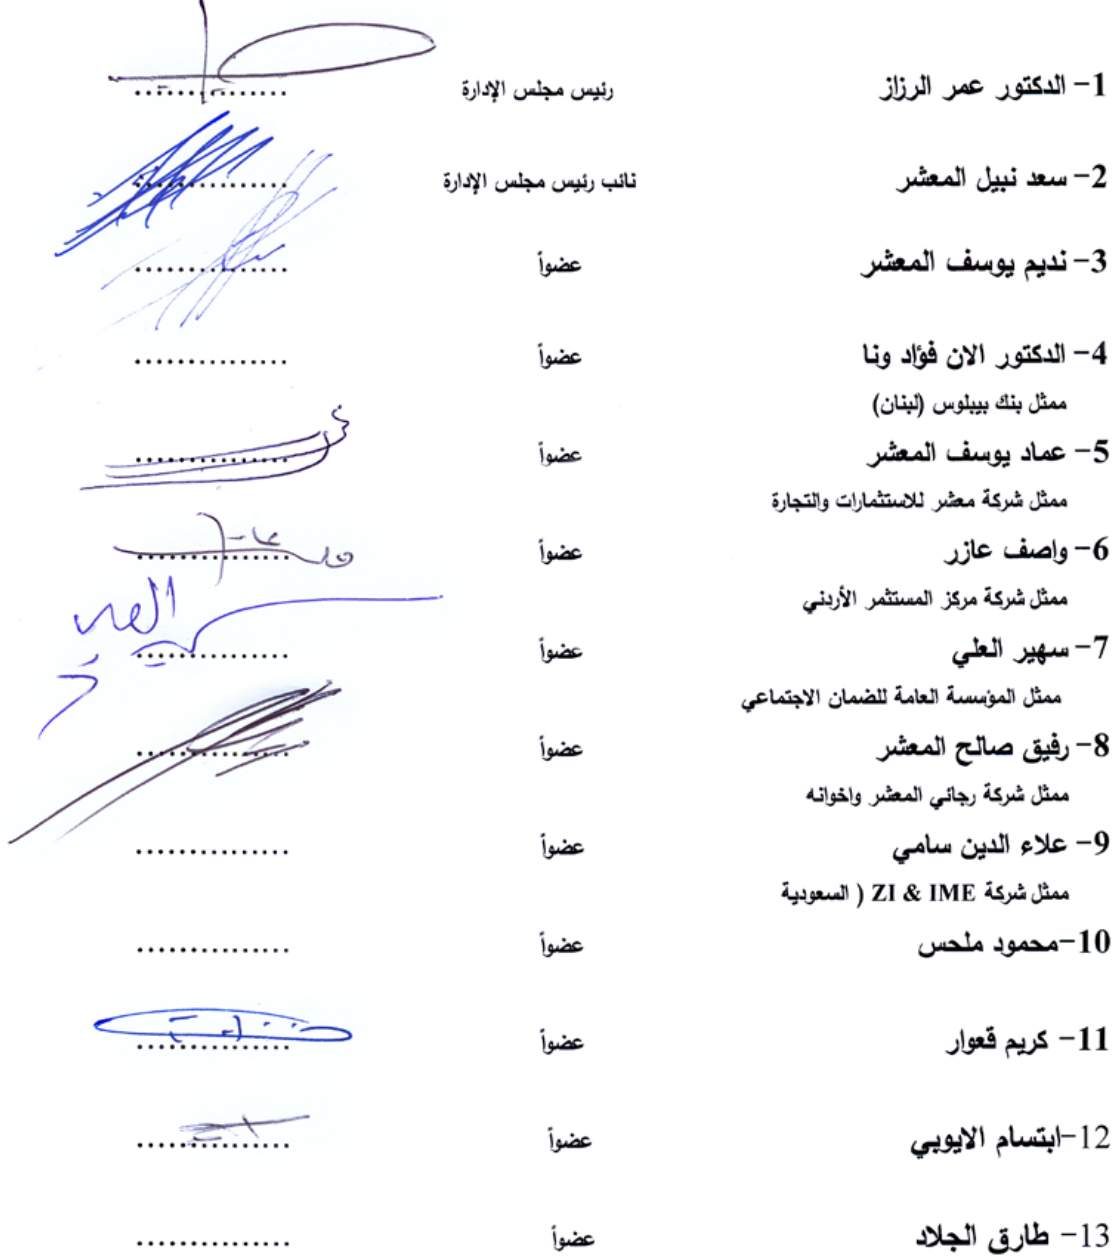 1- الدكتور عمر الرزاز رئيس مجلس الإدارة ...............
2- سعد نبيل المعشر نائب رئيس مجلس الإدارة ...............
3- نديم يوسف المعشر عضواً ...............
4- الدكتور الان فؤاد ونا عضواً ...............
ممثل بنك بيبلوس (لبنان)
5- عماد يوسف المعشر عضواً ...............
ممثل شركة معشر للاستثمارات والتجارة
6- واصف عازر عضواً ...............
ممثل شركة مركز المستثمر الأردني
7- سهير العلي عضواً ...............
ممثل المؤسسة العامة للضمان الاجتماعي
8- رفيق صالح المعشر عضواً ...............
ممثل شركة رجائي المعشر واخوانه
9- علاء الدين سامي عضواً ...............
ممثل شركة ZI & IME ( السعودية
10-محمود ملحس عضواً ...............
11- كريم قعوار عضواً ...............
12-ابتسام الايوبي عضواً ...............
13- طارق الجلاد عضواً ...............